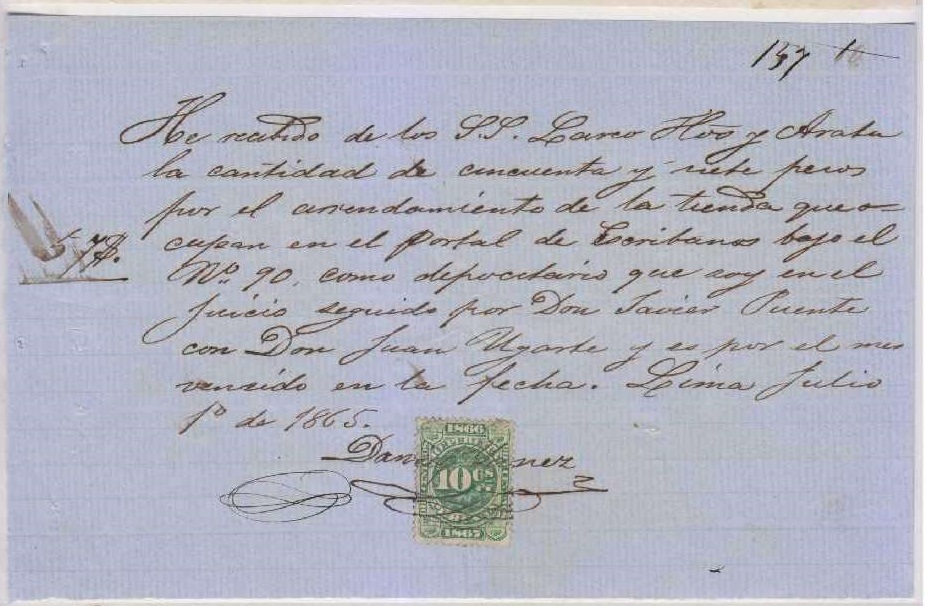 157
He recibido de los S.S. Larco Hos y Arata
la cantidad de cincuenta y siete pesos
por el arrendamiento de la tienda que o=
cupan en el Portal de Escribanos bajo el
No. 90, como depocitario que soy en el
juicio seguido por Don Javier Puente
con Don Juan Ugarte y es por el mes
vencido en la fecha. Lima Julio
1o de 1865.
1866
10 Cs
1867